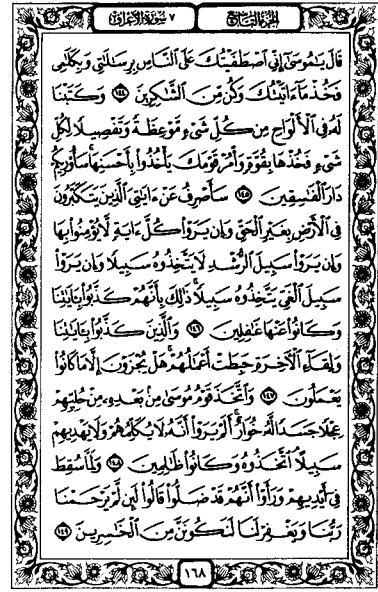 الجزء التاسع ٧ سورة الأعراف
قَالَ يَٰمُوسَىٰٓ إِنِّي ٱصْطَفَيْتُكَ عَلَى ٱلنَّاسِ بِرِسَٰلَٰتِي وَبِكَلَٰمِي
فَخُذْ مَآ ءَاتَيْتُكَ وَكُن مِّنَ ٱلشَّٰكِرِينَ ١٤٤ وَكَتَبْنَا
لَهُۥ فِي ٱلْأَلْوَاحِ مِن كُلِّ شَيْءٍ مَّوْعِظَةً وَتَفْصِيلًا لِّكُلِّ
شَيْءٍ فَخُذْهَا بِقُوَّةٍ وَأْمُرْ قَوْمَكَ يَأْخُذُوا۟ بِأَحْسَنِهَا ۚ سَأُو۟رِيكُمْ
دَارَ ٱلْفَٰسِقِينَ ١٤٥ سَأَصْرِفُ عَنْ ءَايَٰتِيَ ٱلَّذِينَ يَتَكَبَّرُونَ
فِي ٱلْأَرْضِ بِغَيْرِ ٱلْحَقِّ وَإِن يَرَوْا۟ كُلَّ ءَايَةٍ لَّا يُؤْمِنُوا۟ بِهَا
وَإِن يَرَوْا۟ سَبِيلَ ٱلرُّشْدِ لَا يَتَّخِذُوهُ سَبِيلًا وَإِن يَرَوْا۟
سَبِيلَ ٱلْغَيِّ يَتَّخِذُوهُ سَبِيلًا ۚ ذَٰلِكَ بِأَنَّهُمْ كَذَّبُوا۟ بِـَٔايَٰتِنَا
وَكَانُوا۟ عَنْهَا غَٰفِلِينَ ١٤٦ وَٱلَّذِينَ كَذَّبُوا۟ بِـَٔايَٰتِنَا
وَلِقَآءِ ٱلْءَاخِرَةِ حَبِطَتْ أَعْمَٰلُهُمْ ۚ هَلْ يُجْزَوْنَ إِلَّا مَا كَانُوا۟
يَعْمَلُونَ ١٤٧ وَٱتَّخَذَ قَوْمُ مُوسَىٰ مِنۢ بَعْدِهِۦ مِنْ حُلِيِّهِمْ
عِجْلًا جَسَدًا لَّهُۥ خُوَارٌ ۚ أَلَمْ يَرَوْا۟ أَنَّهُۥ لَا يُكَلِّمُهُمْ وَلَا يَهْدِيهِمْ
سَبِيلًا ۘ ٱتَّخَذُوهُ وَكَانُوا۟ ظَٰلِمِينَ ١٤٨ وَلَمَّا سُقِطَ
فِيٓ أَيْدِيهِمْ وَرَأَوْا۟ أَنَّهُمْ قَدْ ضَلُّوا۟ قَالُوا۟ لَئِن لَّمْ يَرْحَمْنَا
رَبُّنَا وَيَغْفِرْ لَنَا لَنَكُونَنَّ مِنَ ٱلْخَٰسِرِينَ ١٤٩
١٦٨